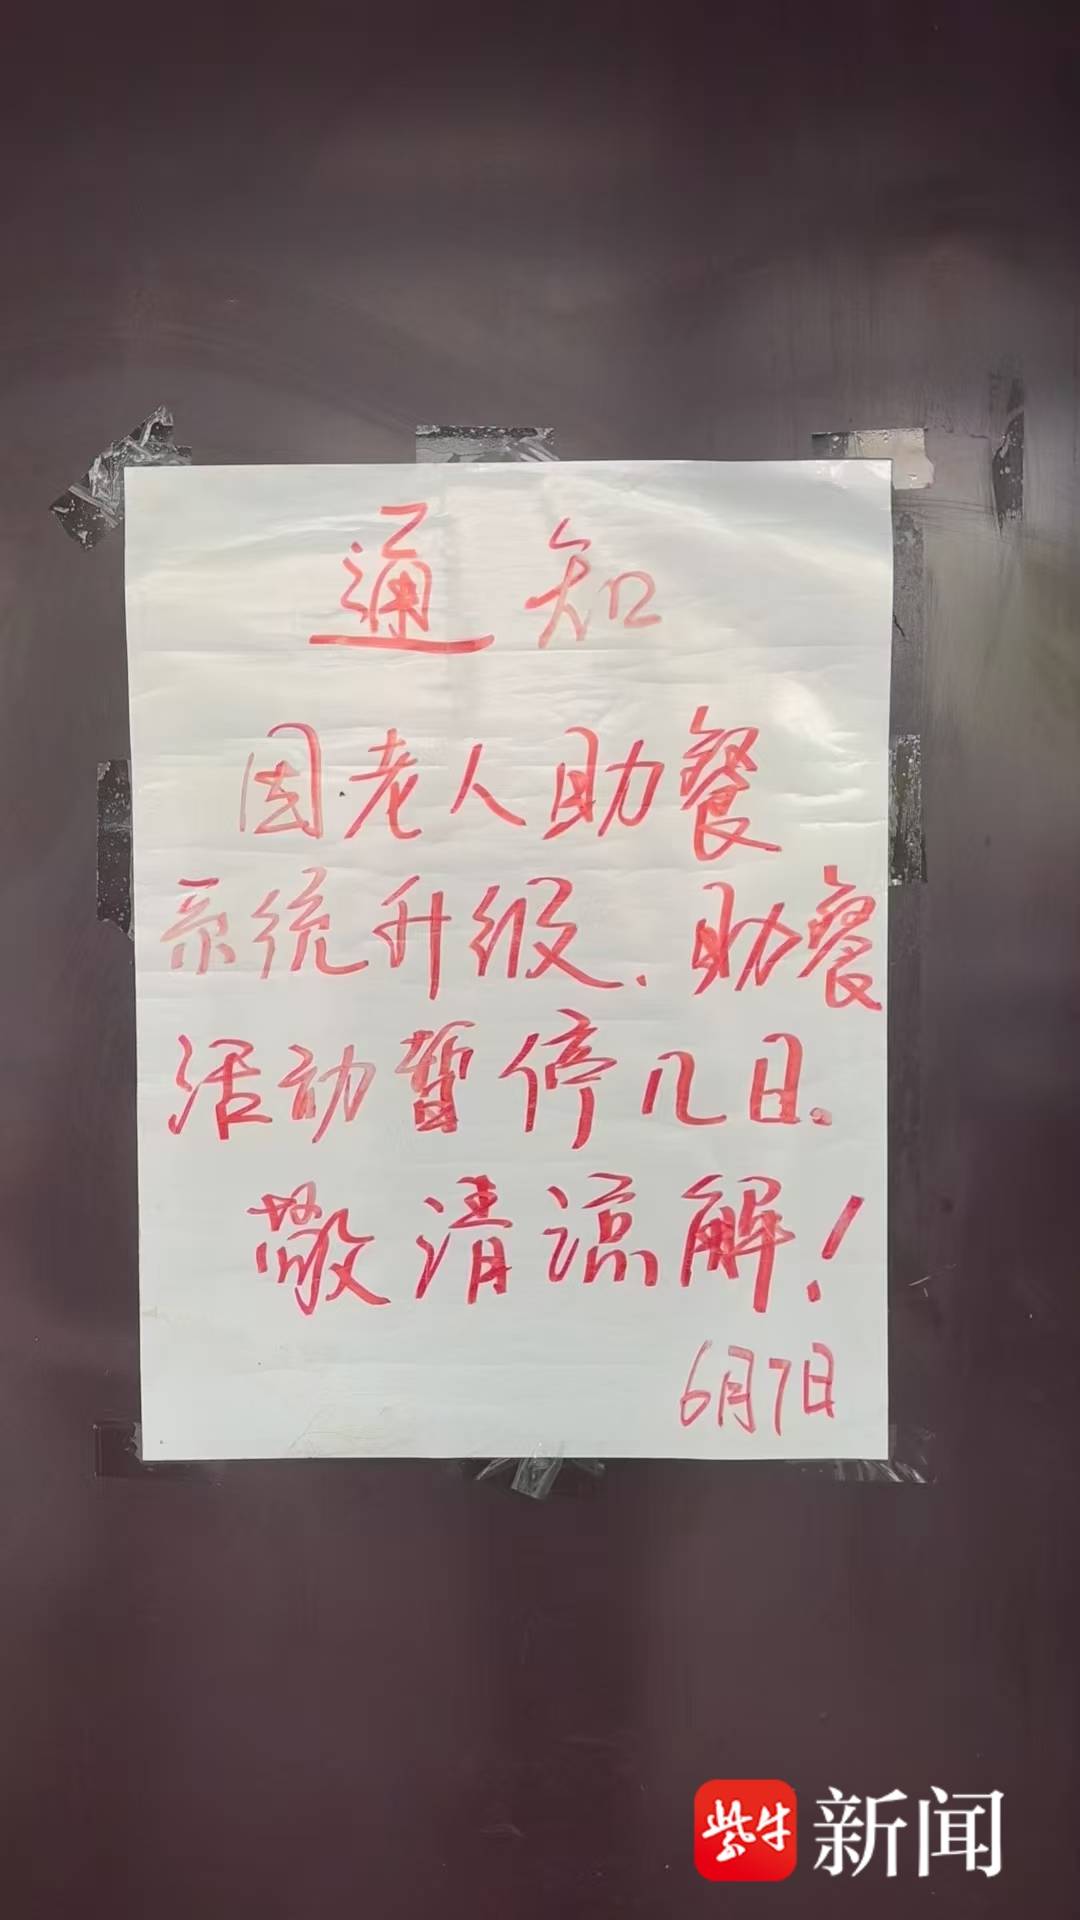 通知
因老人助餐
系统升级.助餐
活动暂停几日.
敬清谅解!
6月7日
紫牛新闻